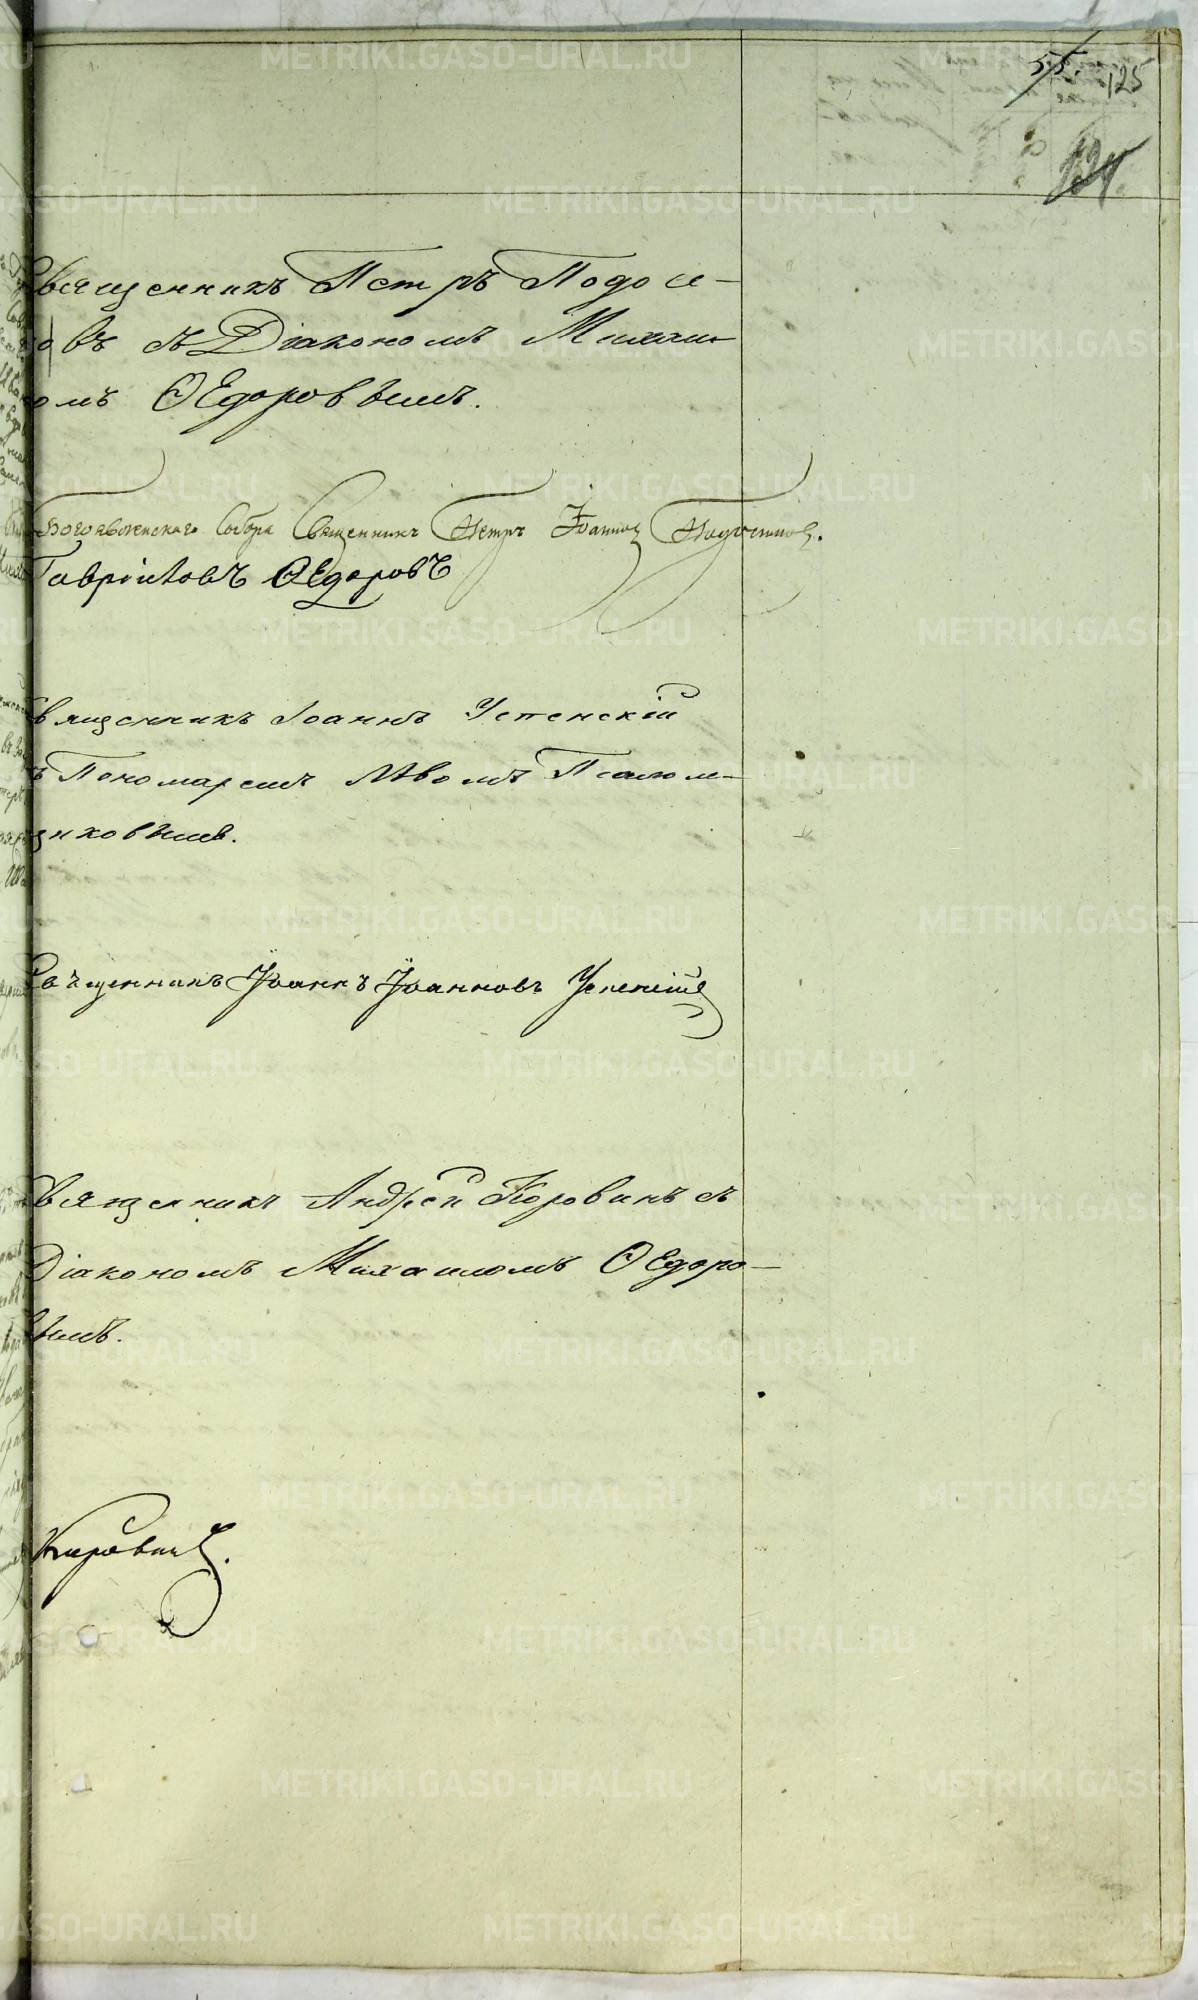 55. 125
124.
Священникъ Петръ Подоси-
новъ съ Діакономъ Михаи-
ломъ Ѳедоровымъ.
Богоявленскаго Собора Священникъ Петръ Іоанновъ
Гавріиловъ Ѳедоровъ
Священникъ Іоаннъ Успенскій
съ Пономаремъ Львомъ Псалом-
щиковымъ.
Священникъ Іоаннъ Іоанновъ Успенскій
Священникъ Андрей Коровинъ съ
Діакономъ Михаиломъ Ѳедоро-
вымъ.
Коровинъ.
METRIKI.GASO-URAL.RU